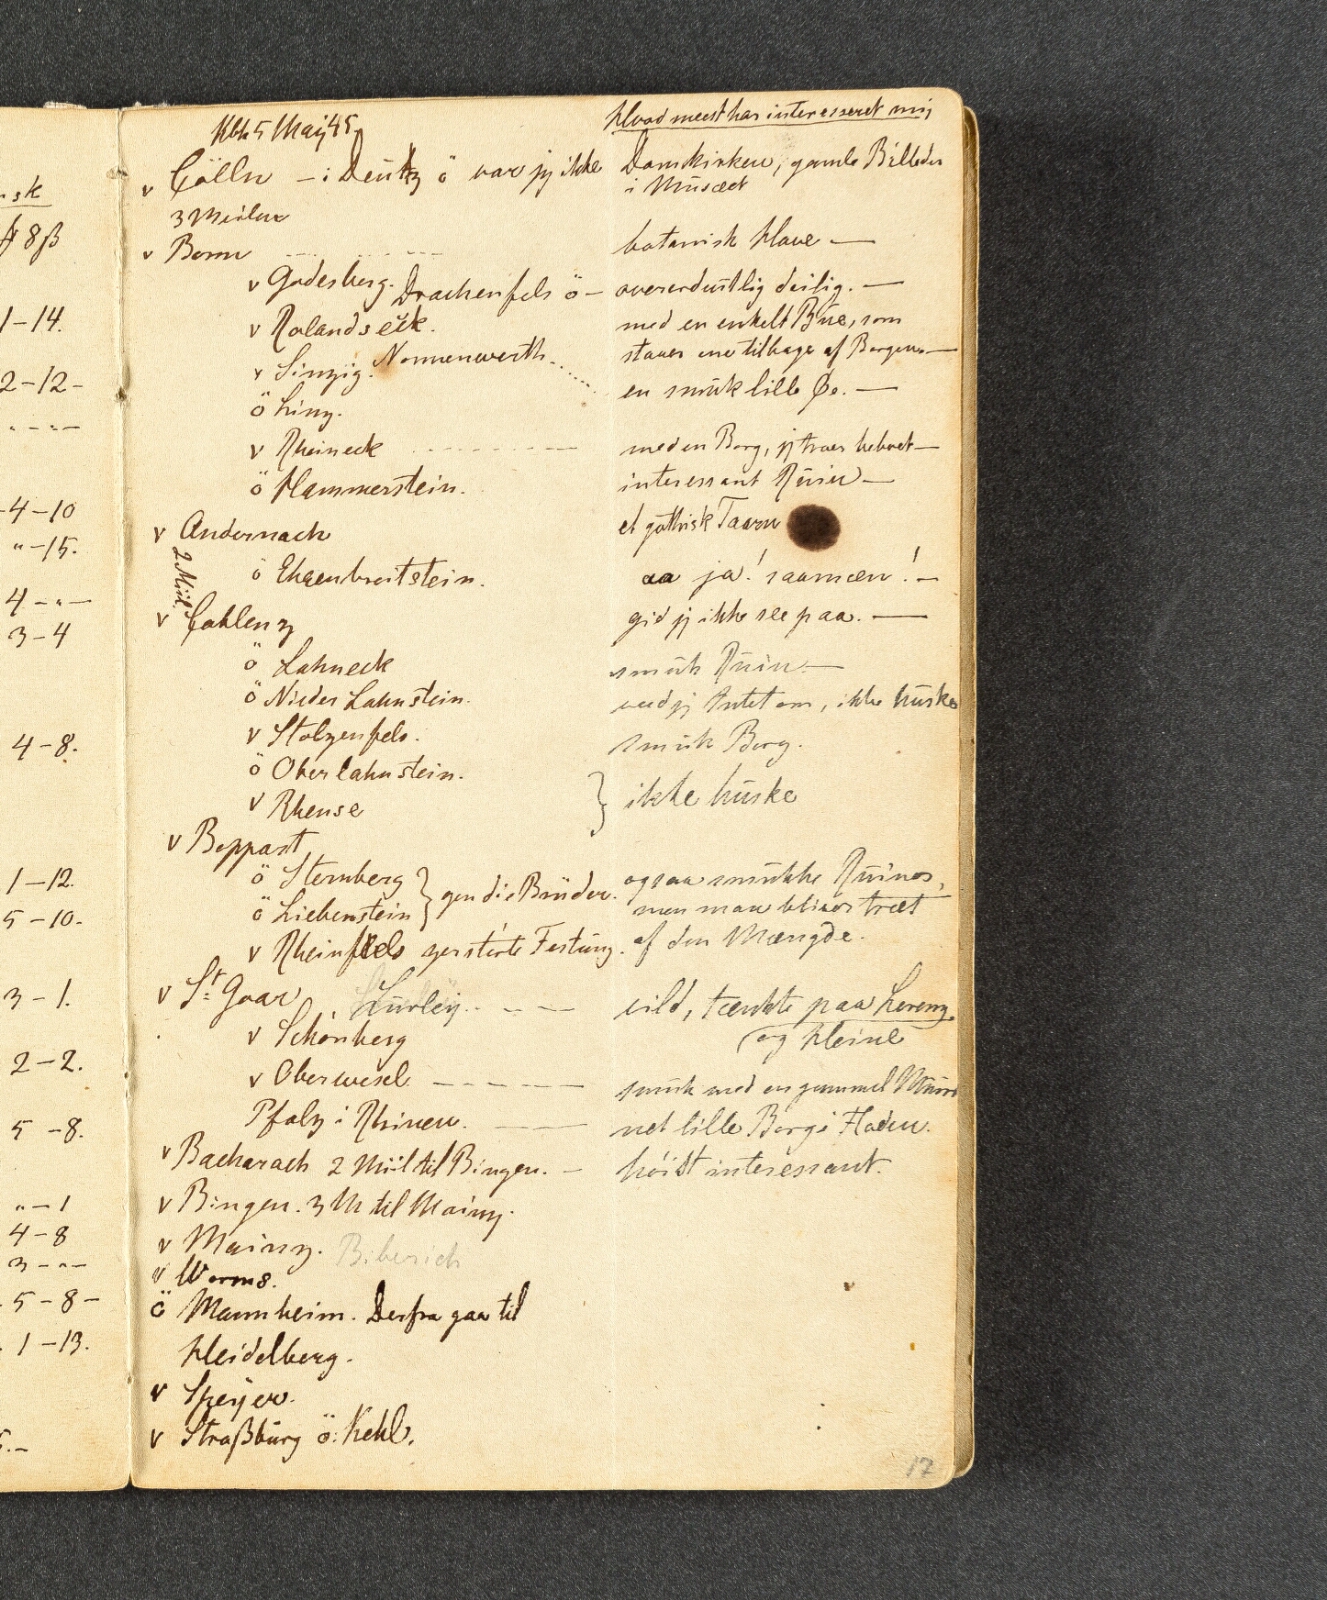 nsk
8 ß
1-14.
2-12-
4-10
"-15.
4-"-
3-4
4-8.
1-12.
5-10.
3-1.
2-2.
5-8.
"-1
4-8
3-"-
5-8-
1-13.
Kbh 5 Maij 45.
Hvad meest har interesseret mij
v Cölln - i Deutz ö var jy ikke Domkirken, gamle Billeder
i Musæet
3 Meilen
v Bonn botanisk Have -
v Godesberg. Drachenfels ö - overordentlig deilig. -
v Rolandseck. med en enkelt Bue, som
v Sinzig. Nonnenwerth staaer ene tilbage af Borgen -
ö Linz. en smuk lille Øe. -
v Rheineck med en Borg, jy troer beboet -
ö Hammerstein. interessant Ruin -
v Andernach et gothisk Taarn
2 Miil.
ö Ehrenbreitstein. aa ja! saamæn! -
v Coblenz gid jy ikke see paa. -
ö Lahneck smuk Ruin -
ö Nieder Lahnstein. veed jy Intet om, ikke huske
v Stolzenfels. smuk Borg.
ö Oberlahnstein.
v Rhense } ikke huske
v Boppart
ö Sternberg ogsaa smukke Ruiner,
ö Liebenstein } gen die Brüder. men man bliver træt
v Rheinfels zerstörte Festung. af den Mængde.
v St Goar Lurley vild, tænkte paa Lorenz.
v Schönberg og Heine
v Oberwesel smuk med en gammel Muur
Pfalz i Rhinen. net lille Borg i Floden.
v Bacharach 2 Miil til Bingen. - höist interessant.
v Bingen. 3 M til Mainz.
v Mainz. Biberich
v Worms.
ö Mannheim. Derfra gaa til
Heidelberg.
v Speyer.
v Straßburg ö: Kehl.
17